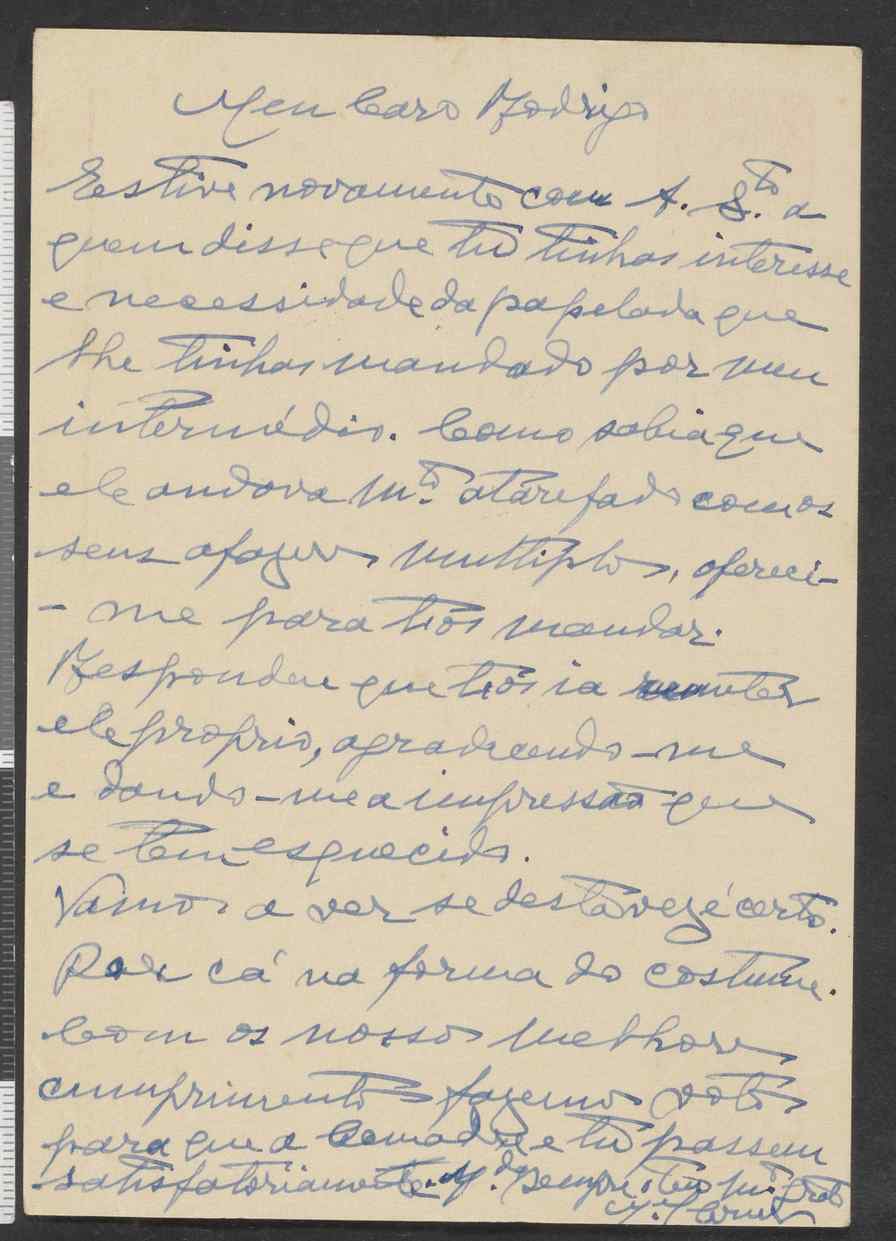 Meu Caro Rodrigo
Estive novamente com A. S.to a
quem disse que tu tinhas interesse
e necessidade da papelada que
lhe tinhas mandado por meu
intermédio. Como sabia que
ele andava m.to atarefado com os
seus afazeres multiplos, ofereci-
- me para t'os mandar.
Respondeu que t'os ia
ele proprio, agradecendo-me
e dando-me a impressão que
se tem esquecido.
Vamos a ver se desta vez é certo.
Por cá na forma do costume.
Com os nossos melhores
cumprimentos fazemos votos
para que a Comadre e tu passem
satisfatoriamente. sempre teu m.to grato